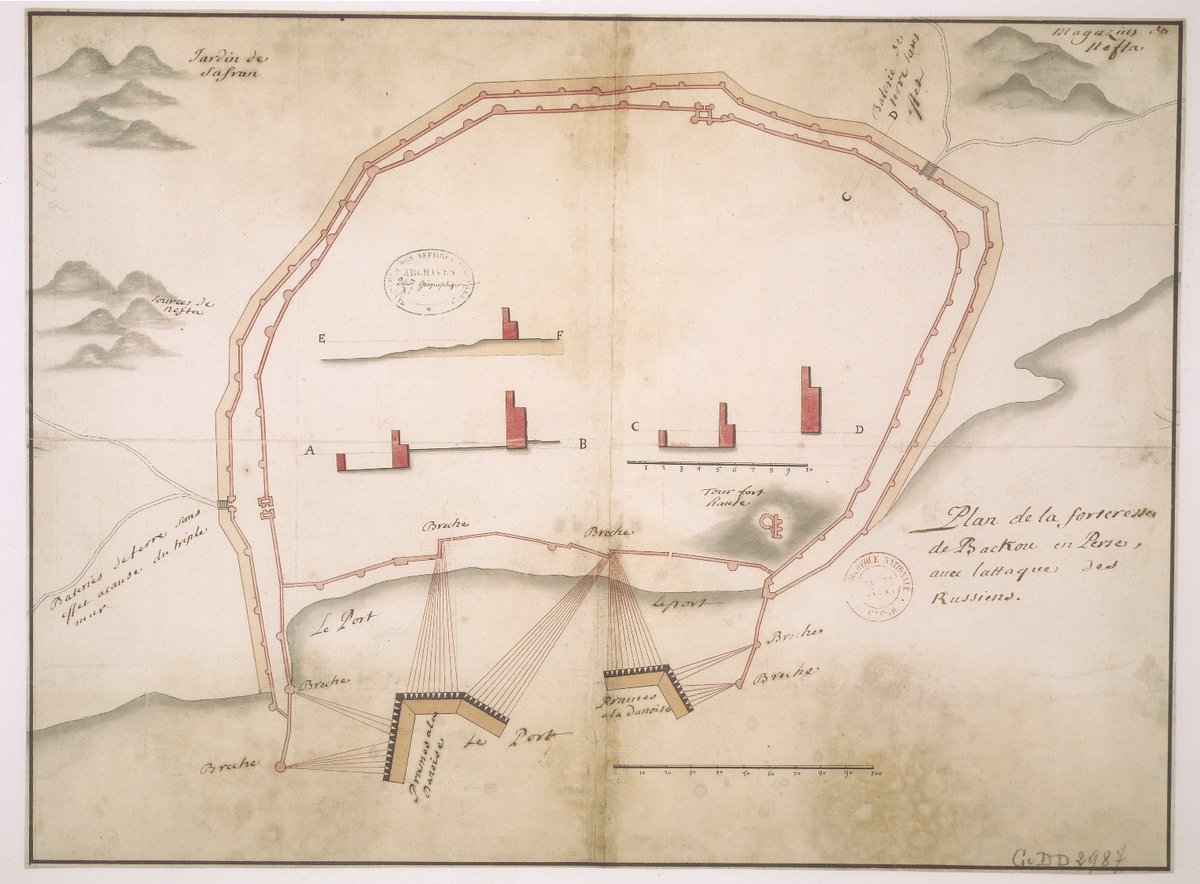 Jardin de
Safran
Magazins de
Nefta
Baterie de
Deterre sans
effet
C
Sources de
Nefta
ARCHIVES
E
F
A
B
C
D
1 2 3 4 5 6 7 8 9 10
Tour fort
haute
Breche
Breche
Plan de la forteresse
de Backou en Perse,
avec lattaque des
Russiens.
Bateries de terre sans
effet acause du triple
mur
Le Port
Le port
Breche
Breche
Breche
Breche
Prames ala
Danoise
Le Port
Prames
ala Danoise
10 20 30 40 50 60 70 80 90 100
Ge DD 2987